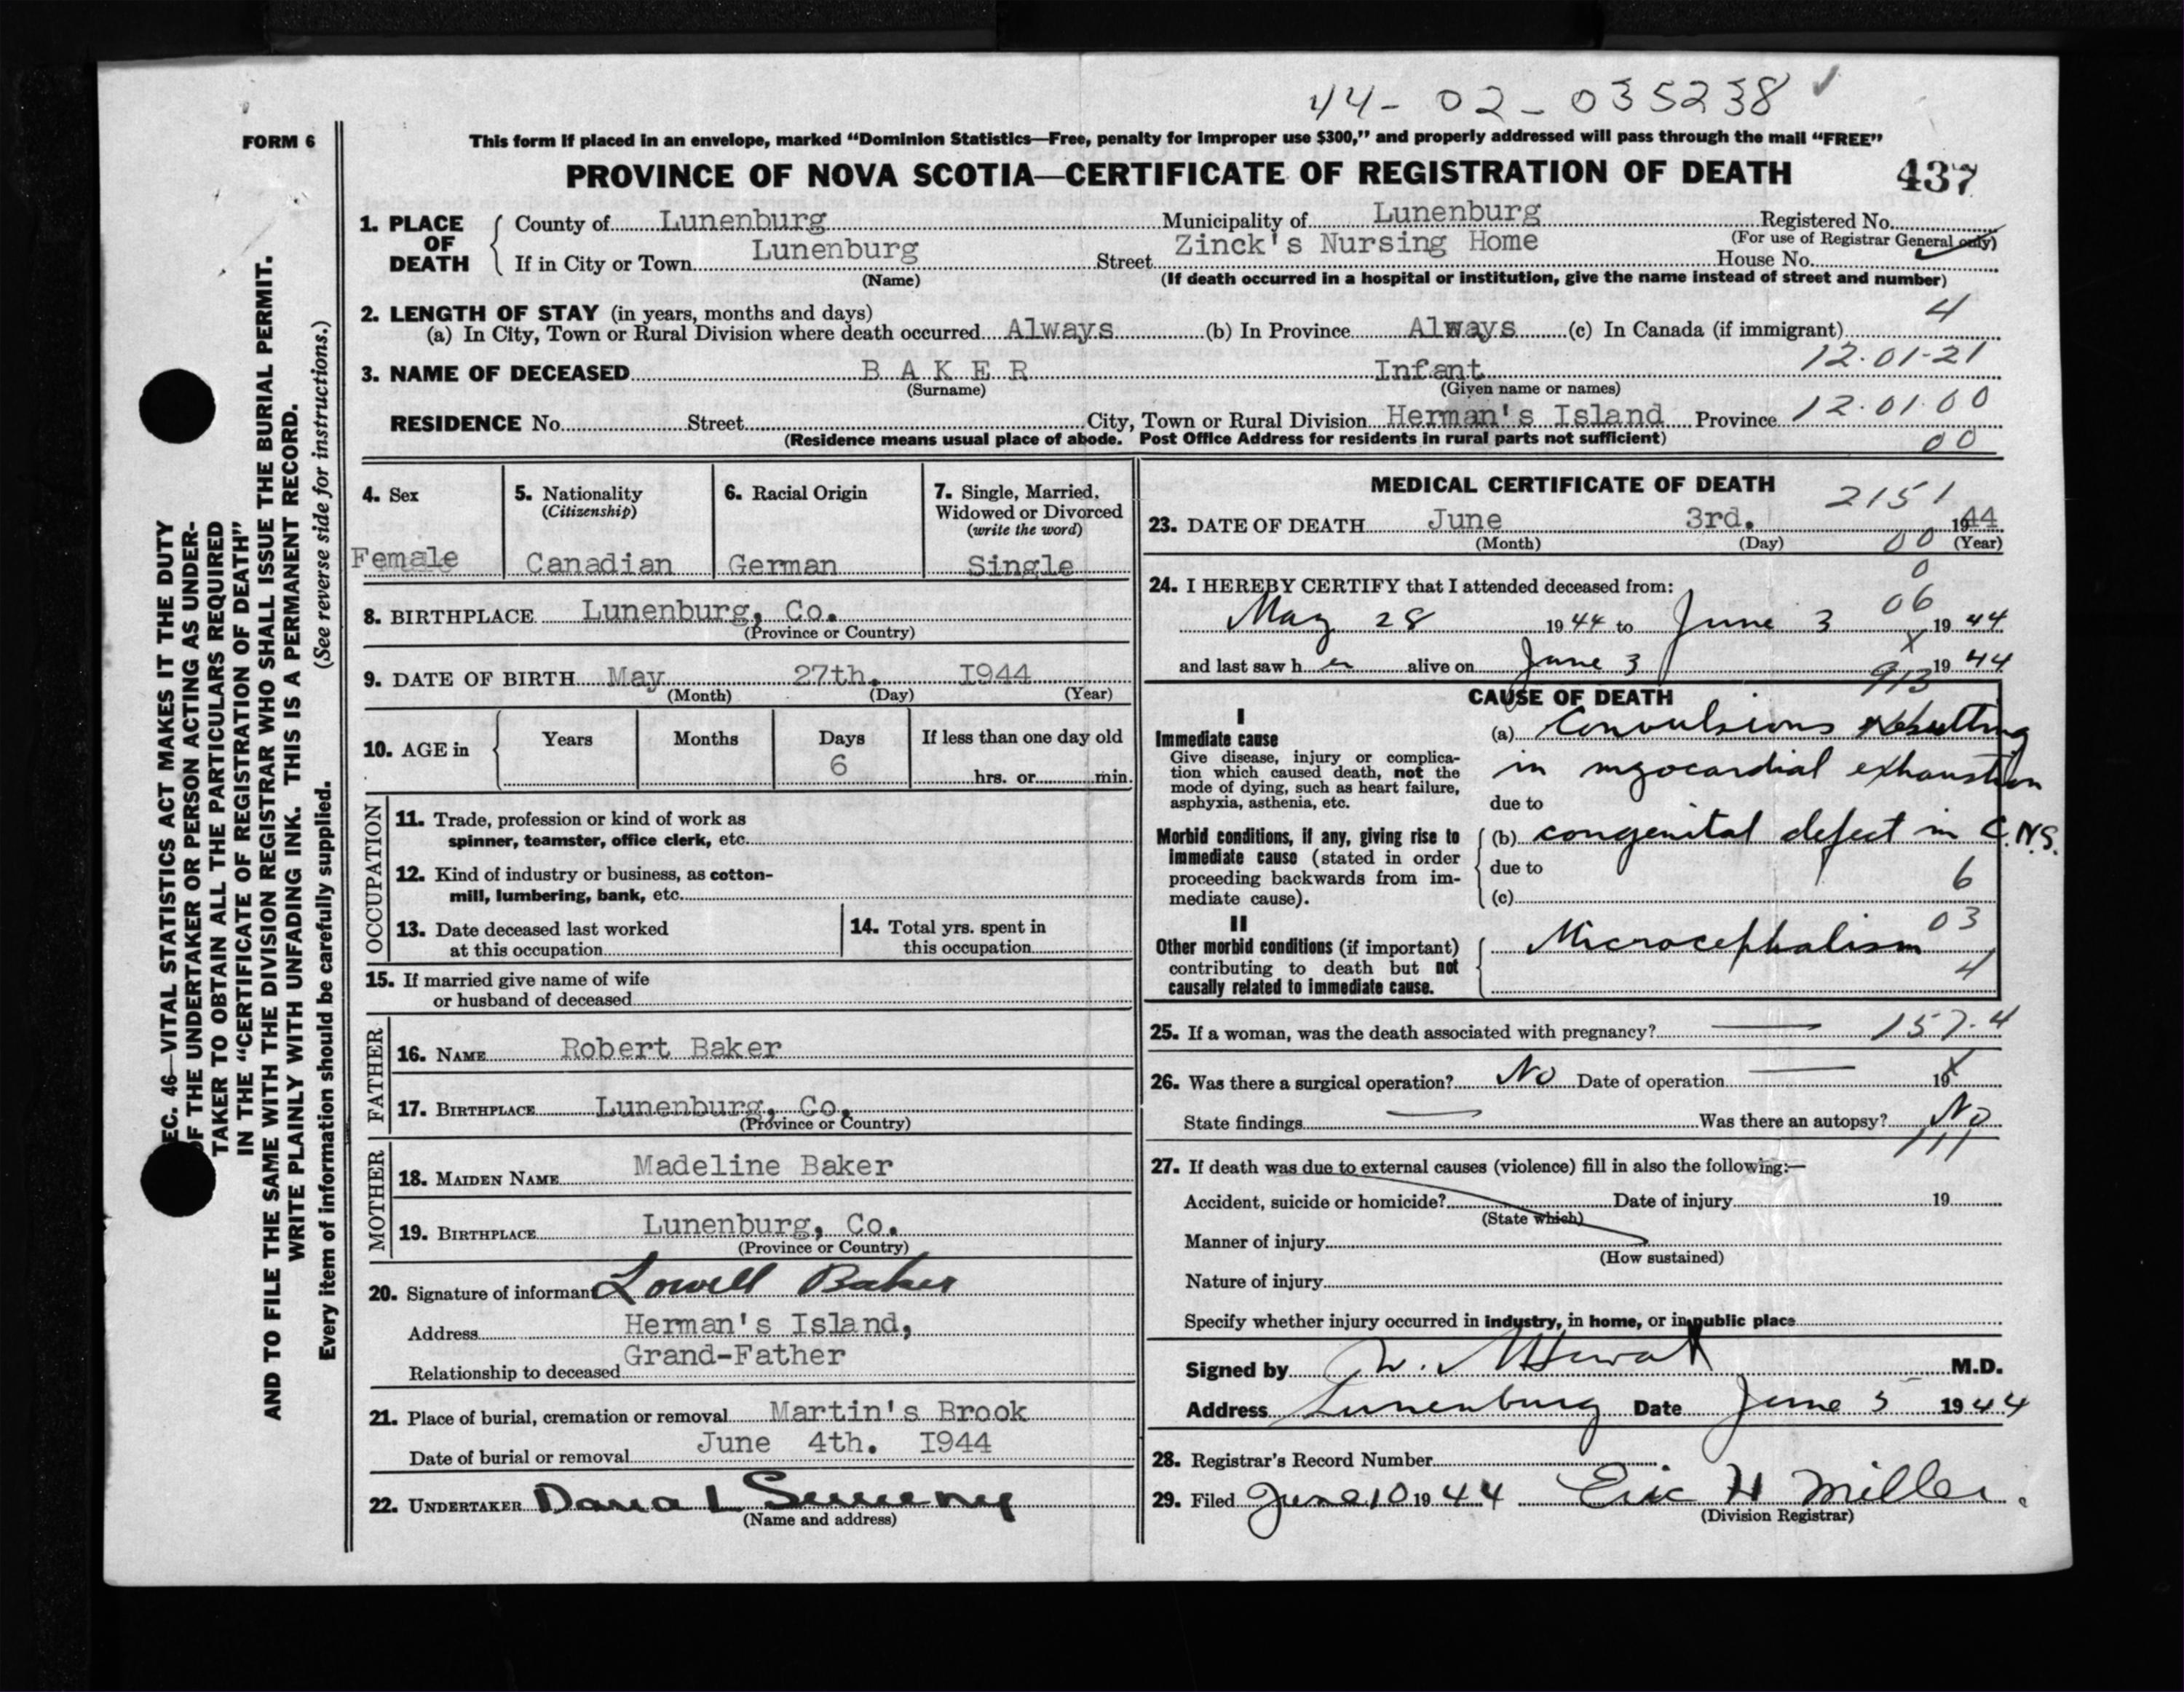 44-02-035238 ✓
FORM 6
This form if placed in an envelope, marked “Dominion Statistics—Free, penalty for improper use $300,” and properly addressed will pass through the mail “FREE”
PROVINCE OF NOVA SCOTIA—CERTIFICATE OF REGISTRATION OF DEATH 437
EC. 46—VITAL STATISTICS ACT MAKES IT THE DUTY
OF THE UNDERTAKER OR PERSON ACTING AS UNDER-
TAKER TO OBTAIN ALL THE PARTICULARS REQUIRED
IN THE “CERTIFICATE OF REGISTRATION OF DEATH”
AND TO FILE THE SAME WITH THE DIVISION REGISTRAR WHO SHALL ISSUE THE BURIAL PERMIT.
WRITE PLAINLY WITH UNFADING INK. THIS IS A PERMANENT RECORD.
Every item of information should be carefully supplied. (See reverse side for instructions.)
1. PLACE OF DEATH
County of Lunenburg Municipality of Lunenburg Registered No.
(For use of Registrar General only)
If in City or Town Lunenburg Street Zinck's Nursing Home House No.
(Name) (If death occurred in a hospital or institution, give the name instead of street and number)
2. LENGTH OF STAY (in years, months and days) 4
(a) In City, Town or Rural Division where death occurred Always (b) In Province Always (c) In Canada (if immigrant)
3. NAME OF DECEASED BAKER Infant 12.01-21
(Surname) (Given name or names)
RESIDENCE No. Street City, Town or Rural Division Herman's Island Province 12.01.00
(Residence means usual place of abode. Post Office Address for residents in rural parts not sufficient) 00
4. Sex
Female
5. Nationality
(Citizenship)
Canadian
6. Racial Origin
German
7. Single, Married,
Widowed or Divorced
(write the word)
Single
8. BIRTHPLACE Lunenburg, Co.
(Province or Country)
9. DATE OF BIRTH May 27th. I944
(Month) (Day) (Year)
10. AGE in Years Months Days If less than one day old
6 hrs. or min.
OCCUPATION
11. Trade, profession or kind of work as
spinner, teamster, office clerk, etc.
12. Kind of industry or business, as cotton-
mill, lumbering, bank, etc.
13. Date deceased last worked
at this occupation
14. Total yrs. spent in
this occupation
15. If married give name of wife
or husband of deceased
FATHER
16. NAME Robert Baker
17. BIRTHPLACE Lunenburg, Co.
(Province or Country)
MOTHER
18. MAIDEN NAME Madeline Baker
19. BIRTHPLACE Lunenburg, Co.
(Province or Country)
20. Signature of informant Lowell Baker
Address Herman's Island,
Relationship to deceased Grand-Father
21. Place of burial, cremation or removal Martin's Brook
Date of burial or removal June 4th. I944
22. UNDERTAKER Dana L Sweeny
(Name and address)
MEDICAL CERTIFICATE OF DEATH
2151
23. DATE OF DEATH June 3rd. 1944
(Month) (Day) 00 (Year)
0
24. I HEREBY CERTIFY that I attended deceased from:
06
May 28 1944 to June 3 1944
X
and last saw h er alive on June 3 1944
913
CAUSE OF DEATH
I
Immediate cause
Give disease, injury or complica-
tion which caused death, not the
mode of dying, such as heart failure,
asphyxia, asthenia, etc.
(a) Convulsions resulting
in myocardial exhaustion
due to
Morbid conditions, if any, giving rise to
immediate cause (stated in order
proceeding backwards from im-
mediate cause).
(b) congenital defect in C.N.S.
due to
6
(c)
II
03
Other morbid conditions (if important)
contributing to death but not
causally related to immediate cause.
Microcephalism
4
25. If a woman, was the death associated with pregnancy? — 157.4
26. Was there a surgical operation? No Date of operation — 19 X
State findings — Was there an autopsy? No
111
27. If death was due to external causes (violence) fill in also the following:—
Accident, suicide or homicide? Date of injury 19
(State which)
Manner of injury
(How sustained)
Nature of injury
Specify whether injury occurred in industry, in home, or in public place
Signed by W. M.D.
Address Lunenburg Date June 5 1944
28. Registrar's Record Number
29. Filed June 10 1944 Eric H Miller.
(Division Registrar)